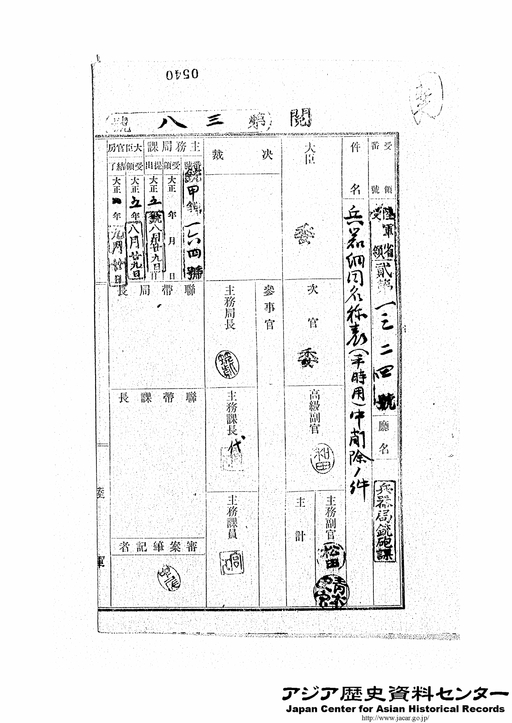 0540
閣 第三八號
受領番號 陸軍省受領 貳第一三二四號
廳名 兵器局銃砲課
件名 兵器細目名稱表(平時用)中削除ノ件
大臣 委
次官 委
高級副官 和田
主務副官 松田
主計
決裁
參事官
主務局長
主務課長 代
主務課員
主務局課
番號 銃甲第一六四號
受領 大正 年 月 日
提出 大正五年八月廿九日
大臣官房
受領 大正五年八月廿九日
結了 大正 年 月 日
聯帶局長
聯帶課長
審案筆記者
陸軍
アジア歴史資料センター
Japan Center for Asian Historical Records
http://www.jacar.go.jp/